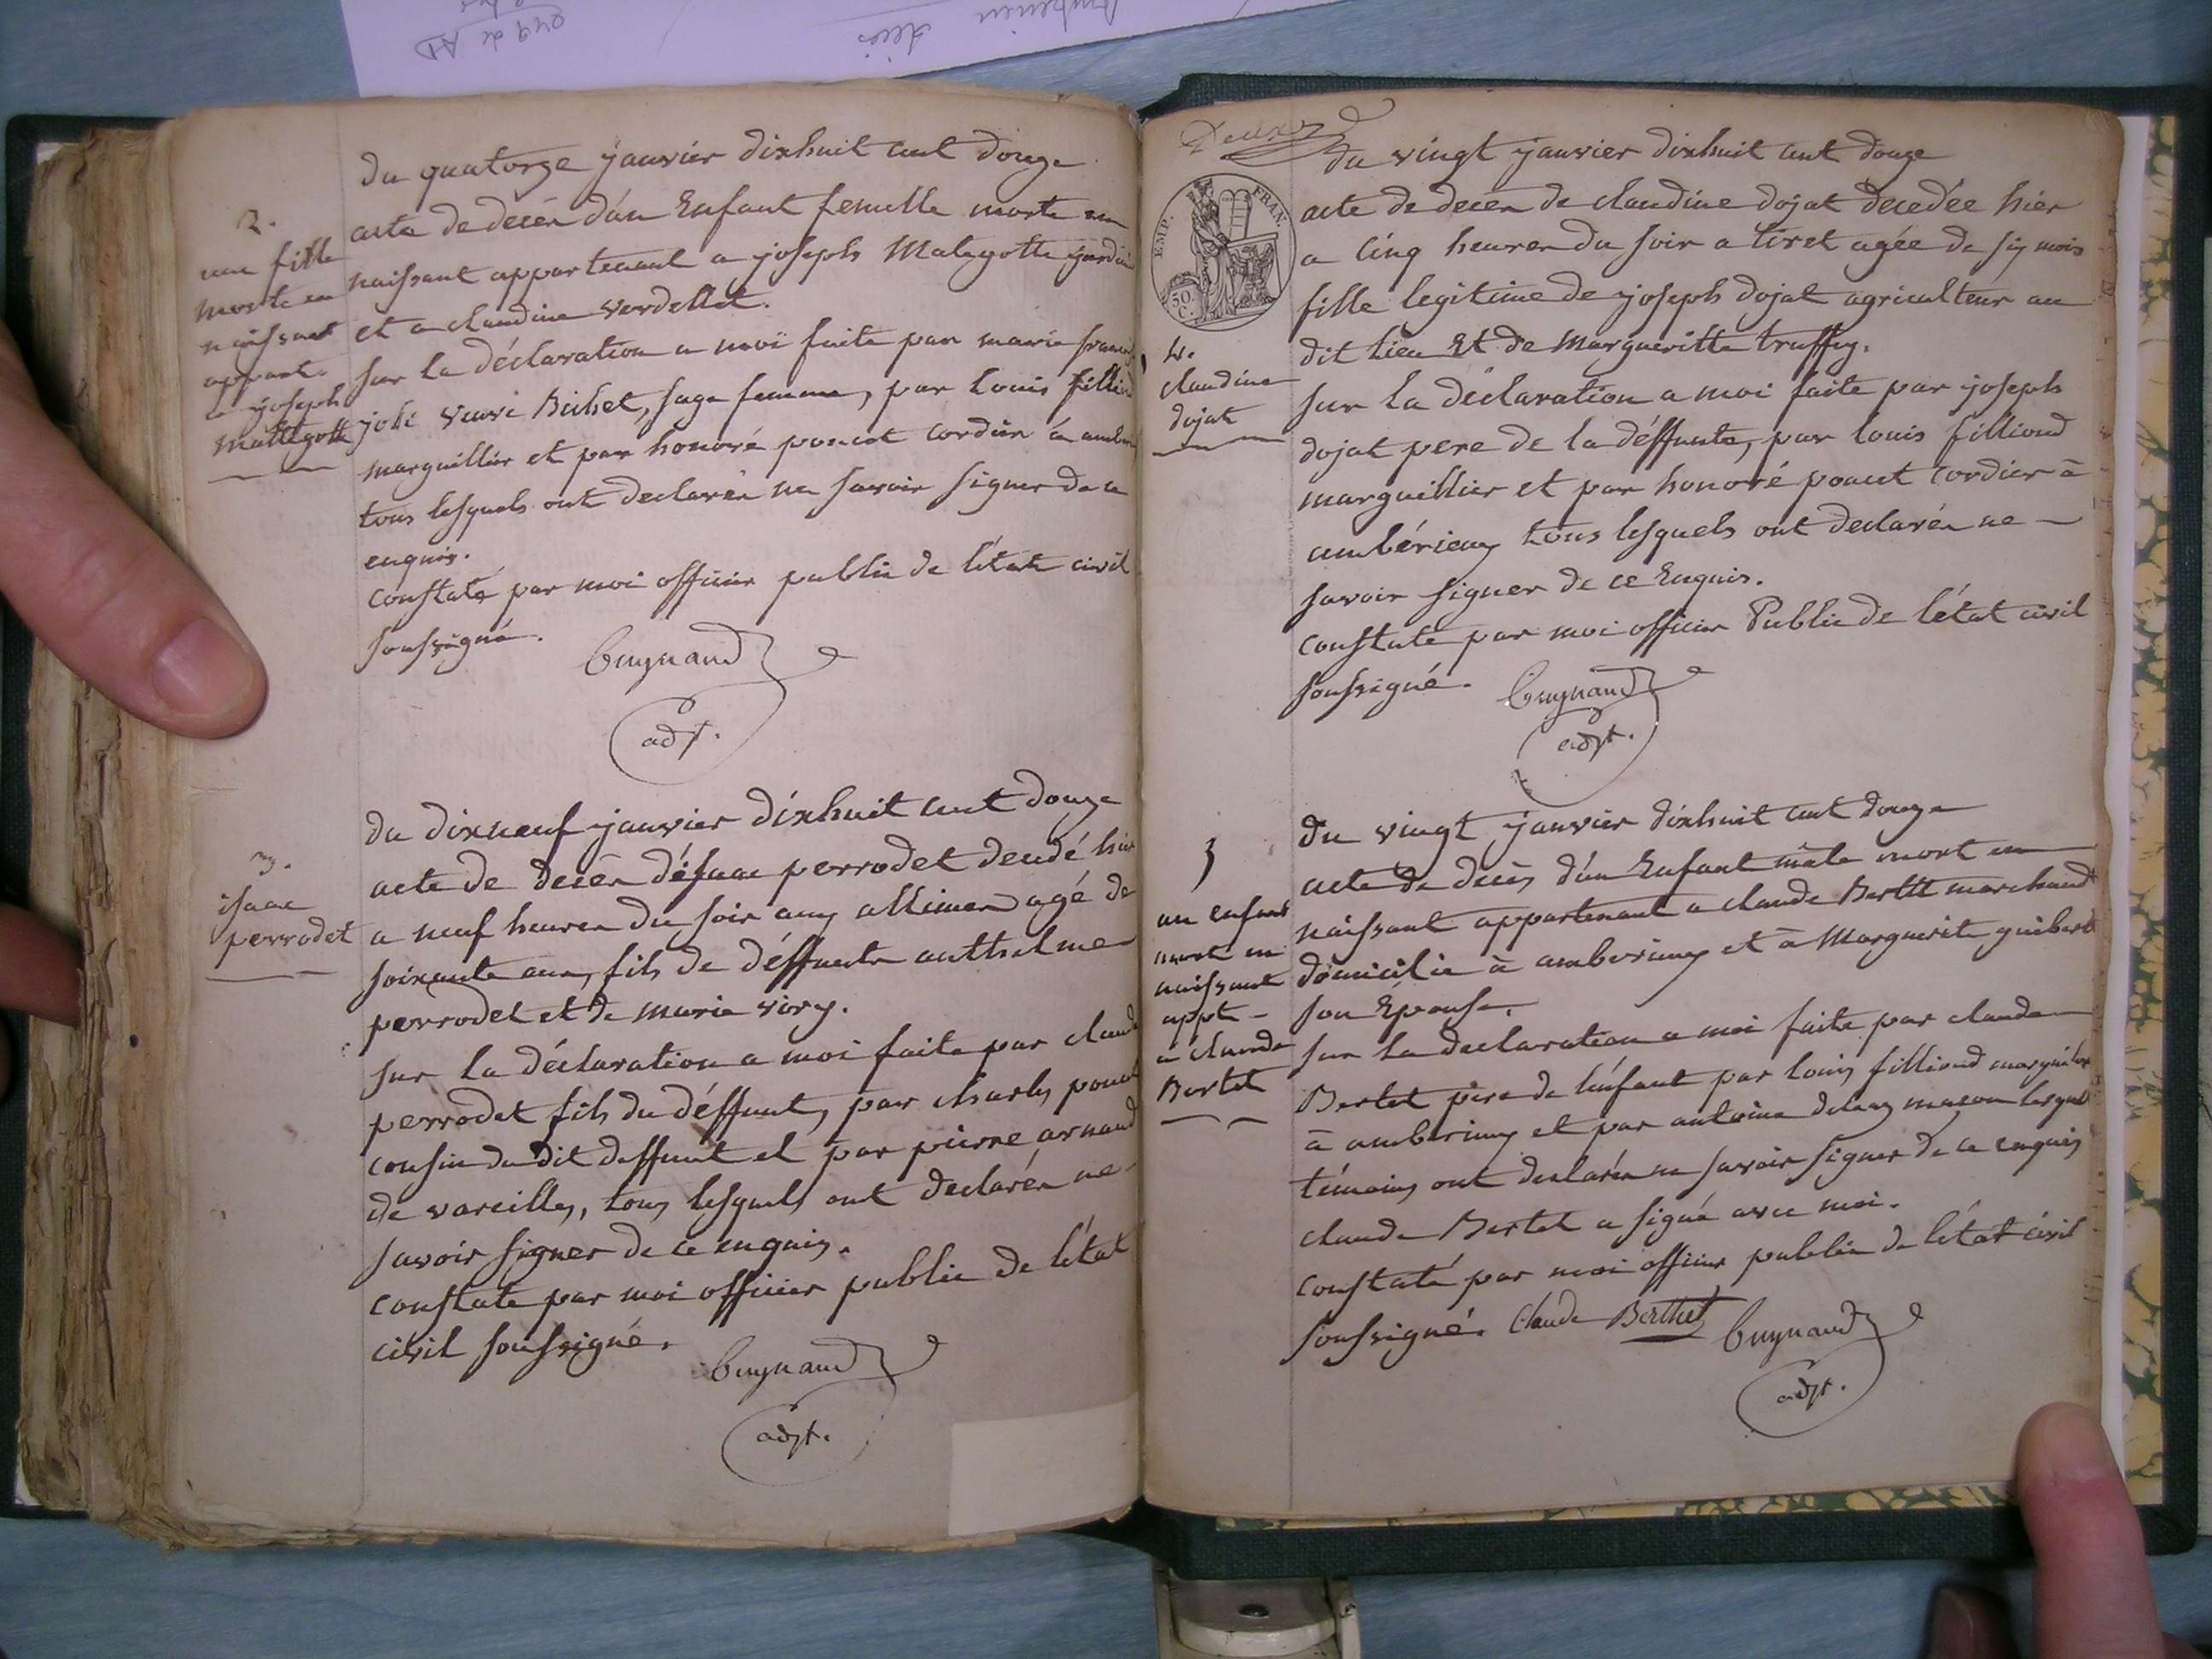 2.
une fille
morte en
naissant
appart.
a joseph
Mattegotte
du quatorze janvier dixhuit cent douze
acte de decès d'un Enfant femelle morte en
naissant appartenant a joseph Malegotte
et a claudine verdellet.
sur la déclaration a moi faite par marie
joli veuve Bichet, sage femme, par Louis filliod
marguillier et par honoré poncet cordier à
tous lesquels ont declarés ne savoir signer de ce
enquis.
constaté par moi officier public de l'état civil
soussigné.
Cuynaud
adjt.
3.
isaac
perrodet
du dixneuf janvier dixhuit cent douze
acte de decès d'isaac perrodet decedé hier
a neuf heures du soir aux allimes agé de
soixante ans, fils de déffunts anthelme
perrodet et de marie vivy.
sur la déclaration a moi faite par claude
perrodet fils du déffunt, par charles poncet
cousin du dit deffunt et par pierre arnaud
de vareilles, tous lesquels ont declarés ne
savoir signer de ce enquis.
constaté par moi officier public de l'état
civil soussigné.
Cuynaud
adjt.
Deux
EMP. FRAN.
50.
C.
4.
claudine
dojat
du vingt janvier dixhuit cent douze
acte de decès de claudine dojat decedée hier
a cinq heures du soir a tiret agée de six mois
fille legitime de joseph dojat agriculteur au
dit lieu Et de Margueritte truffy.
sur la déclaration a moi faite par joseph
dojat pere de la déffunte, par louis filliod
marguillier et par honoré poncet cordier à
ambérieux tous lesquels ont declarés ne
savoir signer de ce Enquis.
constaté par moi officier Public de l'état civil
soussigné.
Cuynaud
adjt.
5
un enfant
mort en
naissant
appt
a claude
Bertet
du vingt janvier dixhuit cent douze
acte de decès d'un Enfant mâle mort en
naissant appartenant a claude Bertet marchand
domicilié à amberieux et à Marguerite guibert
son Épouse.
sur la declaration a moi faite par claude
Bertet père de l'enfant par louis filliod marguillier
à amberieux et par antoine delecy macon lesquels
témoins ont declarés ne savoir signer de ce enquis
claude Bertet a signé avec moi.
constaté par moi officier public de l'état civil
soussigné. Claude Berthet
Cuynaud
adjt.